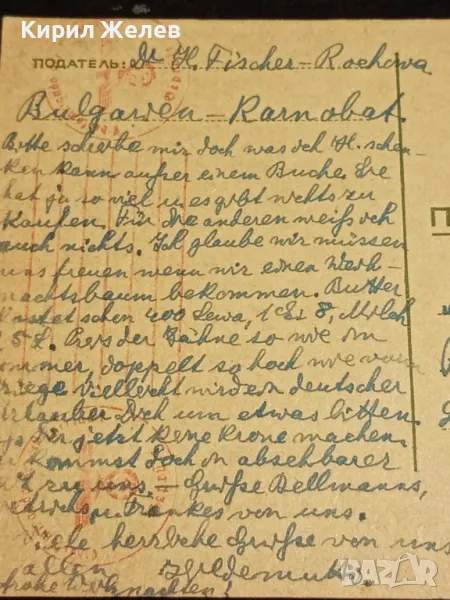 Кирил Желев
ПОДАТЕЛЬ: Dr H. Fischer-Rochowa
Bulgarien - Karnobat.
Bitte schreibe mir doch was ich H. schen-
ken kann außer einem Buche. Sie
hat ja so viel u. es gibt nichts zu
kaufen. Für die anderen weiß ich
auch nichts. Ich glaube wir müssen
uns freuen wenn wir einen Weih-
nachtsbaum bekommen. Butter
kostet schon 400 Lewa, 1 Ei 8, Milch
Preis der Zähne so wie im
ommer, doppelt so hoch wie vorm
iege. Vielleicht wird ein deutscher
rlauber Dich um etwas bitten.
Dir jetzt keine Krone machen.
kommst doch in absehbarer
t zu uns. - Grüße Bellmanns,
Frankes von uns.
herzliche Grüße von uns
allen
frohe Weihnachten!
П
bazar.bg